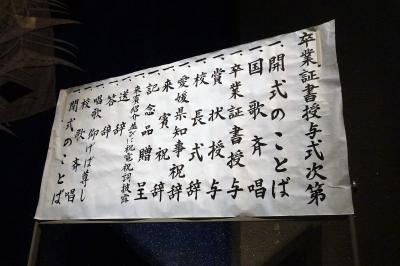 卒業証書授与式次第
一、開式のことば
一、国歌斉唱
一、卒業証書授与
一、賞状授与
一、校長式辞
一、愛媛県知事祝辞
一、来賓祝辞
一、記念品贈呈
一、来賓紹介並びに祝電祝詞披露
一、送辞
一、答辞
一、唱歌 仰げば尊し
一、校歌斉唱
一、閉式のことば